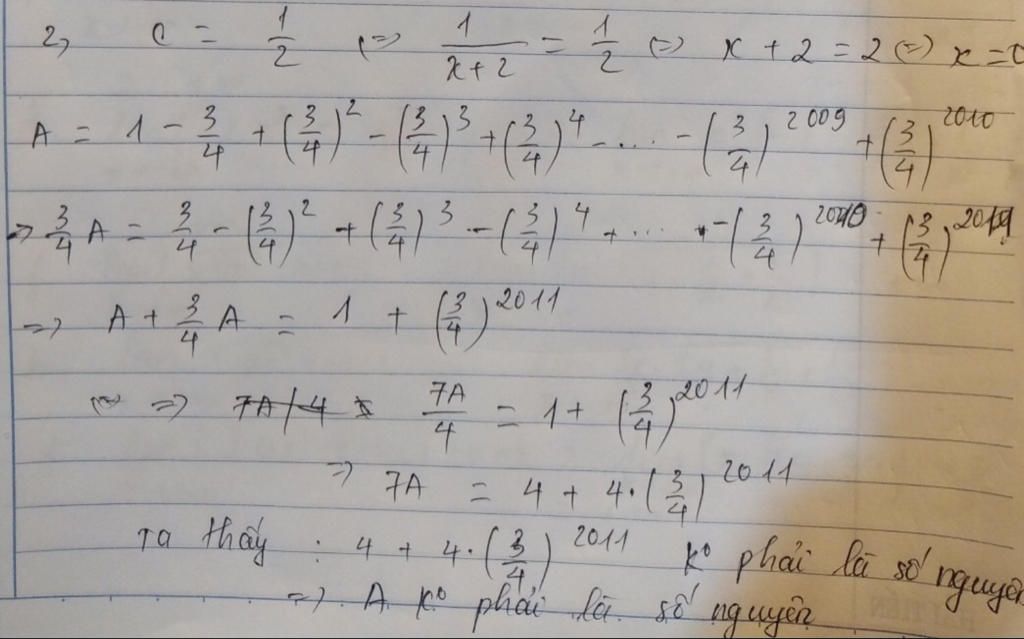 2, C = 1/2 (=) 1/(x+2) = 1/2 (=) x + 2 = 2 (=) x = 0
A = 1 - 3/4 + (3/4)^2 - (3/4)^3 + (3/4)^4 - .... - (3/4)^2009 + (3/4)^2010
=> 3/4 A = 3/4 - (3/4)^2 + (3/4)^3 - (3/4)^4 + ... - (3/4)^2010 + (3/4)^2011
=> A + 3/4 A = 1 + (3/4)^2011
=> 7A/4 = 1 + (3/4)^2011
=> 7A = 4 + 4.(3/4)^2011
Ta thấy : 4 + 4.(3/4)^2011 k° phải là số nguyên
=> A k° phải là số nguyên